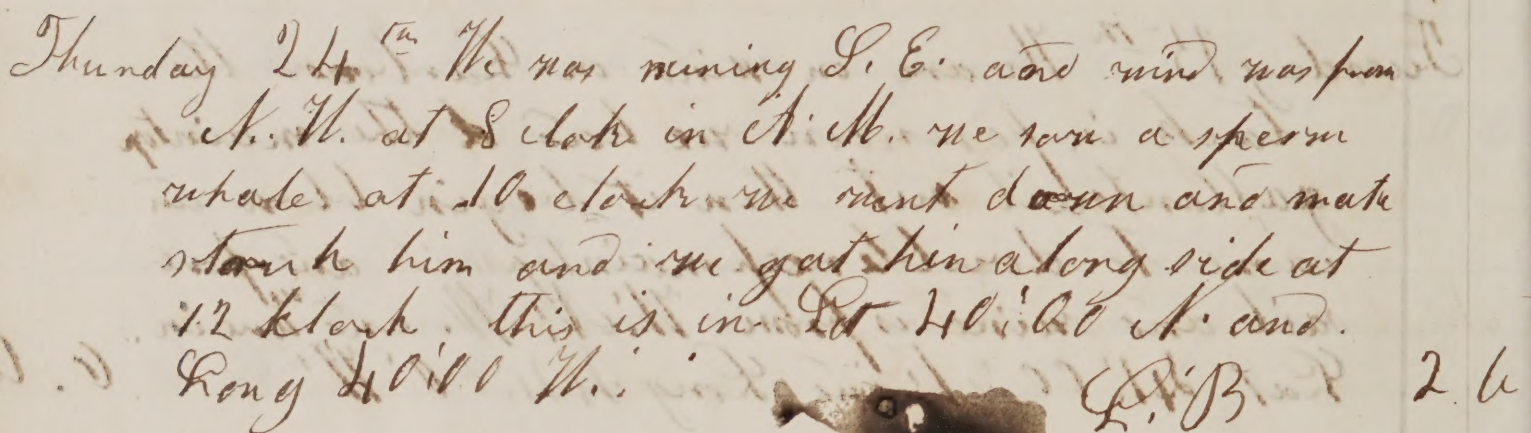 Thursday 24th We was runing S. E. and wind was from
N. W. at 8 clok in A. M. we saw a sperm
whale. at 10 clock we went down and mate
storuk him and we gat him along side at
12 klock. this is in Lat 40:00 N. and.
Long 40:00 W.
L. B 2